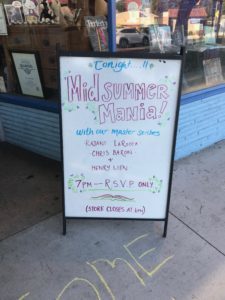 Tonight...!!
Mid SUMMER
MANIA!
with our master scribes
RAJANI LAROCCA
CHRIS BARON
+
HENRY LIEN
7PM — R.S.V.P ONLY
(STORE CLOSES AT 6PM)
OME